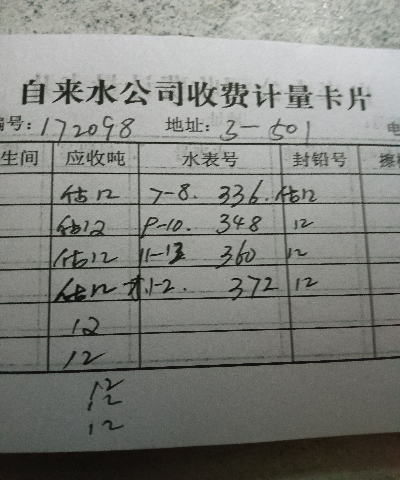 自来水公司收费计量卡片
编号: 172098 地址: 3-501 电
生间 应收吨 水表号 封铅号 擦
估12 7-8. 336. 估12
估12 9-10. 348 12
估12 11-12 360 12
估12 1-2. 372 12
12
12
12
12
12